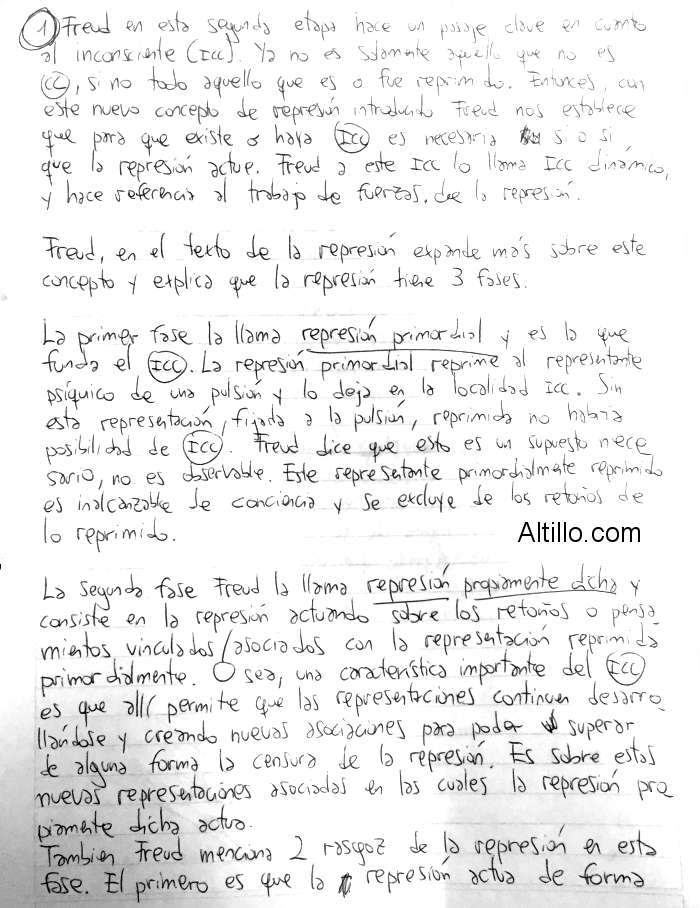 1) Freud en esta segunda etapa hace un pasaje clave en cuanto
al inconsciente (Icc). Ya no es solamente aquello que no es
CC, si no todo aquello que es o fue reprimido. Entonces, con
este nuevo concepto de represión introducido Freud nos establece
que para que existe o haya Icc es necesaria si o si
que la represión actue. Freud a este Icc lo llama Icc dinámico,
y hace referencia al trabajo de fuerzas, de la represión.
Freud, en el texto de la represión expande más sobre este
concepto y explica que la represión tiene 3 fases.
La primer fase la llama represión primordial y es la que
funda el Icc. La represión primordial reprime al representante
psíquico de una pulsión y lo deja en la localidad Icc. Sin
esta representación, fijada a la pulsión, reprimida no habria
posibilidad de Icc. Freud dice que esto es un supuesto nece
sario, no es observable. Este representante primordialmente reprimido
es inalcanzable de conciencia y se excluye de los retoños de
lo reprimido.
Altillo.com
La segunda fase Freud la llama represión propiamente dicha y
consiste en la represión actuando sobre los retoños o pensa
mientos vinculados/asociados con la representación reprimida
primordialmente. O sea, una característica importante del Icc
es que allí permite que las representaciones continuen desarro
llandose y creando nuevas asociaciones para poder superar
de alguna forma la censura de la represión. Es sobre estas
nuevas representaciones asociadas en las cuales la represión pro
piamente dicha actua.
Tambien Freud menciona 2 rasgoz de la represión en esta
fase. El primero es que la represión actua de forma